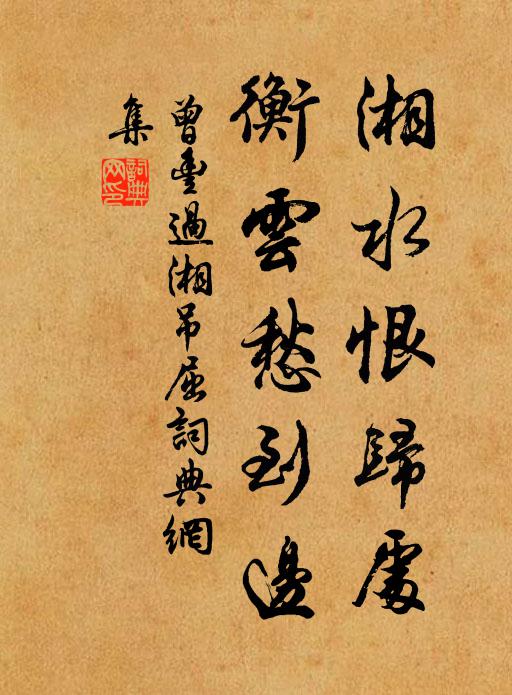 湘水恨歸處
衡雲愁到邊
曾豐過湘吊屈詞典網
集
詞典
網印